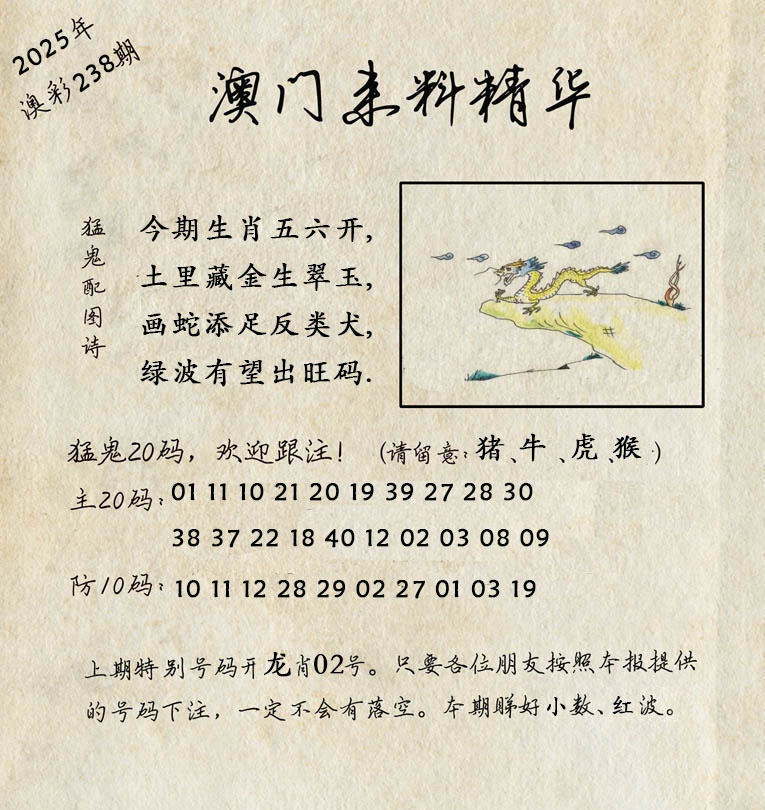 2025年
澳彩238期
澳门来料精华
猛鬼配图诗
今期生肖五六开,
土里藏金生翠玉,
画蛇添足反类犬,
绿波有望出旺码.
猛鬼20码，欢迎跟注！（请留意:猪、牛、虎、猴）
主20码：01 11 10 21 20 19 39 27 28 30
38 37 22 18 40 12 02 03 08 09
防10码：10 11 12 28 29 02 27 01 03 19
上期特别号码开龙肖02号。只要各位朋友按照本报提供
的号码下注，一定不会有落空。本期睇好小数、红波。